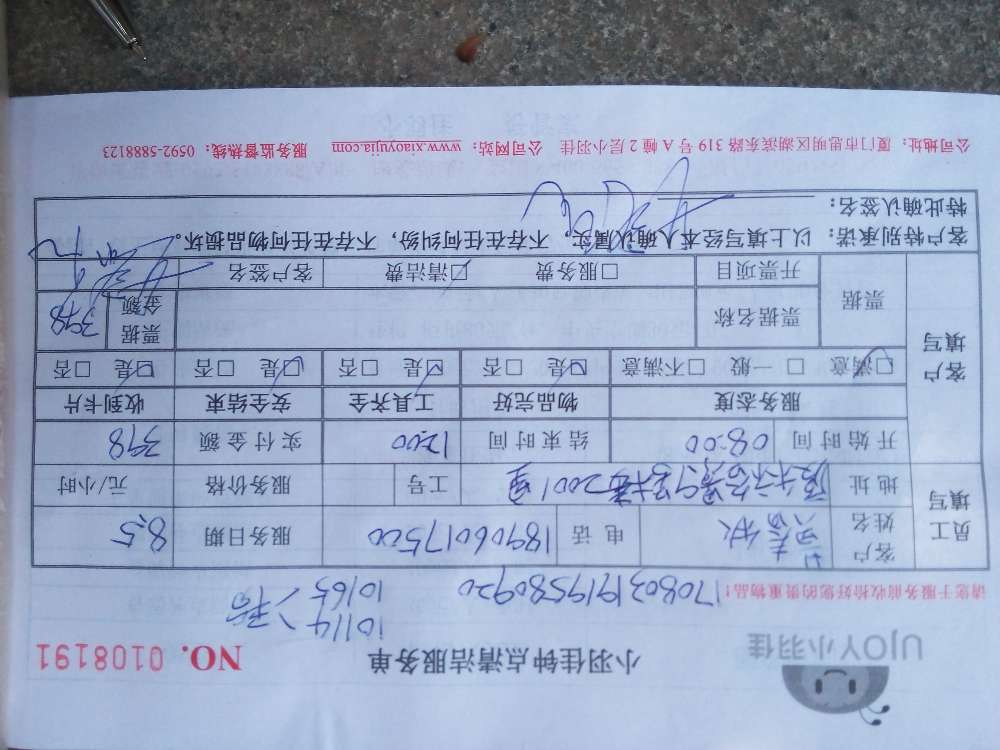 UjOY小羽佳
小羽佳钟点清洁服务单
NO. 0108191
10114
10165
请您于服务前收拾好您的贵重物品！
1708031919580920
员工填写
客户姓名
电话 18906017500
服务日期 8.5
地址 2001
工号
服务价格 元/小时
开始时间 08:00 结束时间 12:00 实付金额 398
客户填写
服务态度 物品完好 工具齐全 安全结束 收到卡片
☑满意 □一般 □不满意 ☑是 □否 ☑是 □否 ☑是 □否 ☑是 □否
票据 票据名称 票据金额 398
开票项目 □服务费 ☑清洁费 客户签名
客户特别承诺：以上填写经本人确认属实，不存在任何纠纷，不存在任何物品损坏。
特此确认签名：
公司地址：厦门市思明区湖滨东路 319 号 A 幢 2 层小羽佳 公司网站：www.xiaoyujia.com 服务监督热线：0592-5888123